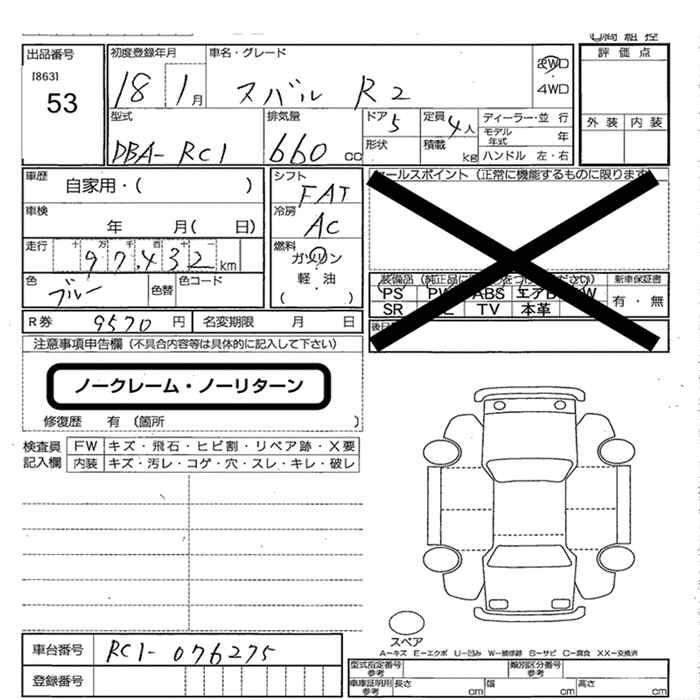 出品番号
[863]
53
初度登録年月
18 1月
車名・グレード
スバル R2
2WD
4WD
評価点
外装 内装
型式
DBA-RC1
排気量
660 cc
ドア 5
定員 4人
形状
積載 kg
ディーラー・並行
モデル年式 年
ハンドル 左・右
車歴
自家用・( )
車検
年 月( 日)
走行
十 万 千 百 十 一
97,432 km
色
ブルー
色替
色コード
シフト
FAT
冷房
AC
燃料
ガソリン
軽・油
( )
セールスポイント (正常に機能するものに限ります)
新車保証書
有・無
PS PW ABS エアB
SR TV 本革
R券 9570 円
名変期限 月 日
注意事項申告欄 (不具合内容等は具体的に記入して下さい)
ノークレーム・ノーリターン
修復歴 有 (箇所 )
検査員記入欄
FW キズ・飛石・ヒビ割・リペア跡・X要
内装 キズ・汚レ・コゲ・穴・スレ・キレ・破レ
スペア
A−キズ E−エクボ U−凹み W−補修跡 S−サビ C−腐食 XX−交換済
車台番号 RC1-076275
登録番号
型式指定番号 参考
類別区分番号 参考
車庫証明用 参考
長さ cm
幅 cm
高さ cm